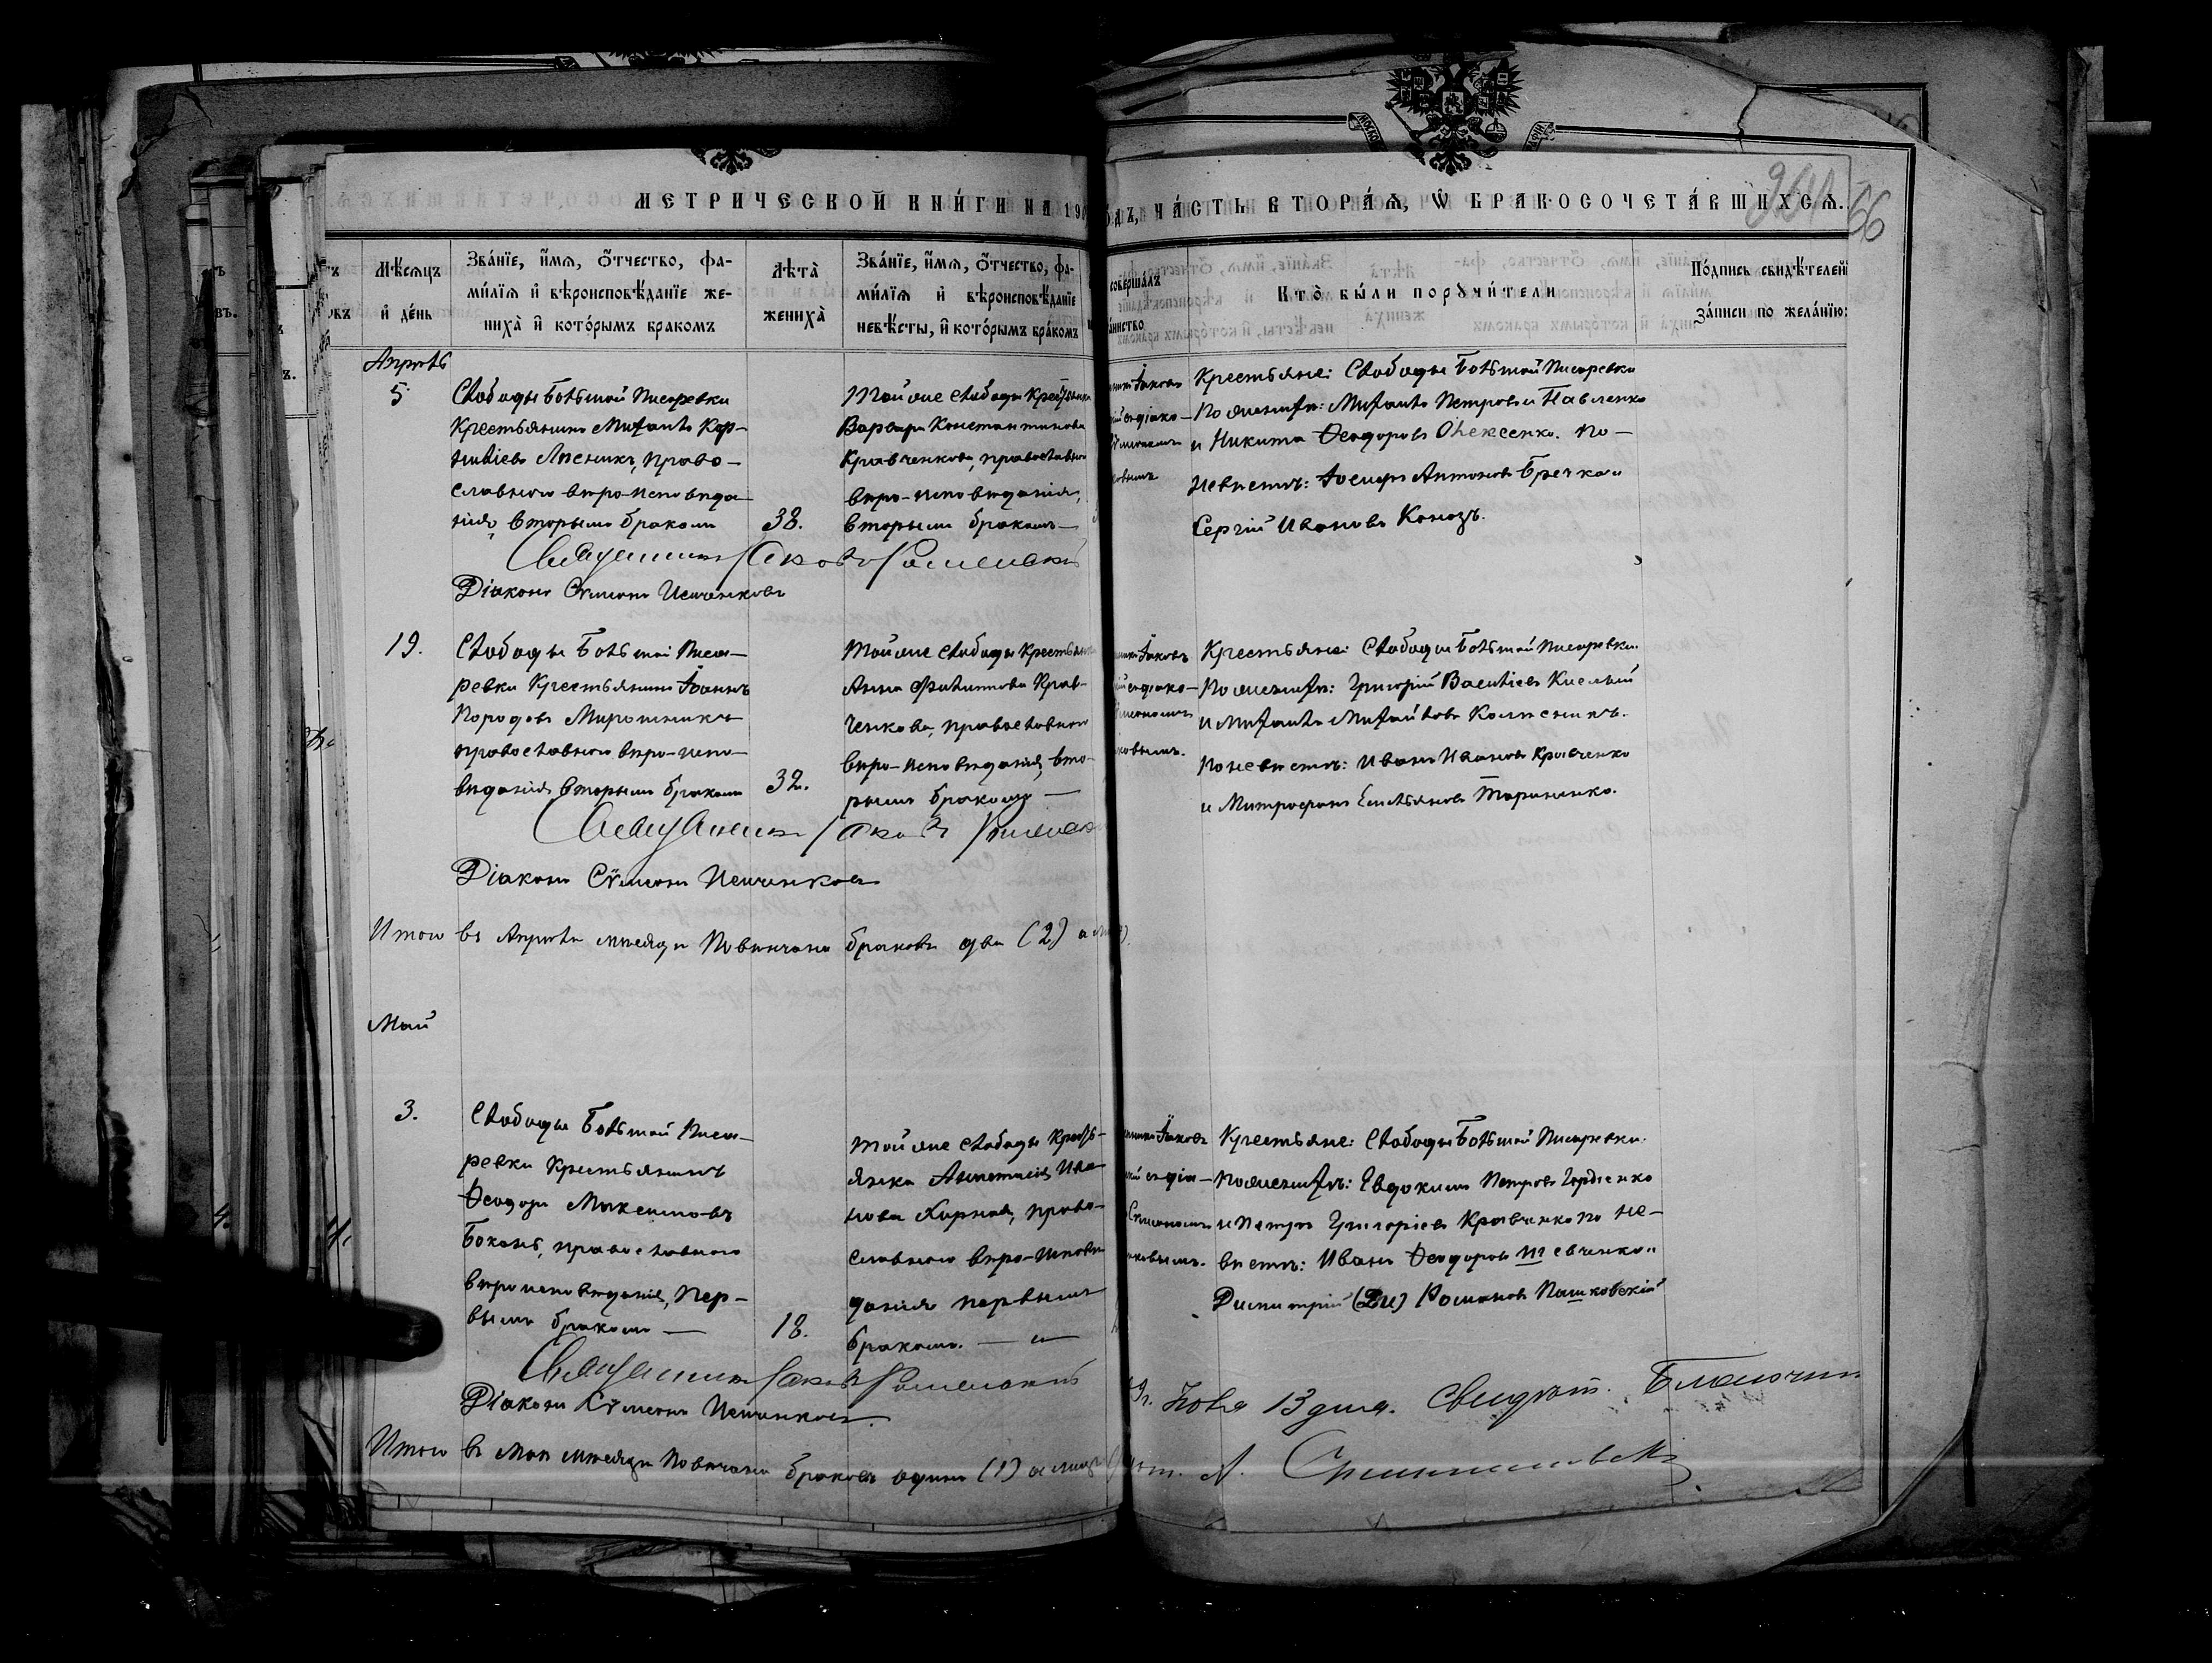 МЕТРИЧЕСКОЙ КНИГИ НА 190
ЧАСТЬ ВТОРАЯ, Ѡ БРАКОСОЧЕТАВШИХСЯ.
66
Мѣсяцъ
и день
Званїе, имя, отчество, фа-
милїя и вѣроисповѣданїе же-
ниха и которымъ бракомъ
Лѣта
жениха
Званїе, имя, отчество, фа-
милїя и вѣроисповѣданїе
невѣсты, и которымъ бракомъ
совершалъ
Кто были поручители
Подпись свидѣтелей
записи по желанїю:
Апрѣль
5
Слободы Большой Писаревки
Крестьянинъ Михаилъ Кор-
нилiевъ право-
славнаго вѣро-исповѣда
нiя, вторымъ бракомъ
38.
Той же слободы Крестьянка
Варвара Константинова
Кравченкова, православнаго
вѣро-исповѣданiя,
вторымъ бракомъ
Iаковъ
Крестьяне: Слободы Большой Писаревки
По женихѣ: Михаилъ Петровъ Павленко
и Никита Ѳеодоровъ Олексенко. По-
невѣстѣ: Iосифъ Антоновъ Бречка и
Сергiй Ивановъ Конозъ.
Священникъ Iаковъ
Дiаконъ Сѵмеонъ
19.
Слободы Большой Писа-
ревки Крестьянинъ Iоаннъ
Мирошникъ
православнаго вѣро-испо-
вѣданiя вторымъ бракомъ
32.
Той же слободы Крестьянка
Анна Филиппова Крав-
ченкова, православнаго
вѣро-исповѣданiя, вто-
рымъ бракомъ
Iаковъ
Крестьяне: Слободы Большой Писаревки.
По женихѣ: Григорiй Васильевъ Кислый
и Михаилъ Михайловъ
По невѣстѣ: Иванъ Ивановъ Кравченко
и Митрофанъ Емельяновъ Тараненко.
Священникъ Iаковъ
Дiаконъ Сѵмеонъ
Итого въ Апрѣлѣ мѣсяцѣ повѣнчано браковъ два (2)
Май
3.
Слободы Большой Писа-
ревки Крестьянинъ
Ѳеодоръ Максимовъ
Боконь, православнаго
вѣроисповѣданiя, пер-
вымъ бракомъ
18.
Той же слободы Кресть-
янка Анастасiя Ива-
нова право-
славнаго вѣро-исповѣ
данiя первымъ
бракомъ.
Iаковъ
Крестьяне: Слободы Большой Писаревки.
По женихѣ: Евдокимъ Петровъ Гордiенко
и Петръ Григорiевъ Кравченко по не-
вѣстѣ: Иванъ Ѳеодоровъ Шевченко и
Димитрiй (Ди) Романовъ Пашковскiй
Священникъ Iаковъ
Дiаконъ Сѵмеонъ
Итого въ Маѣ мѣсяцѣ повѣнчано браковъ одинъ (1)
13 дня.